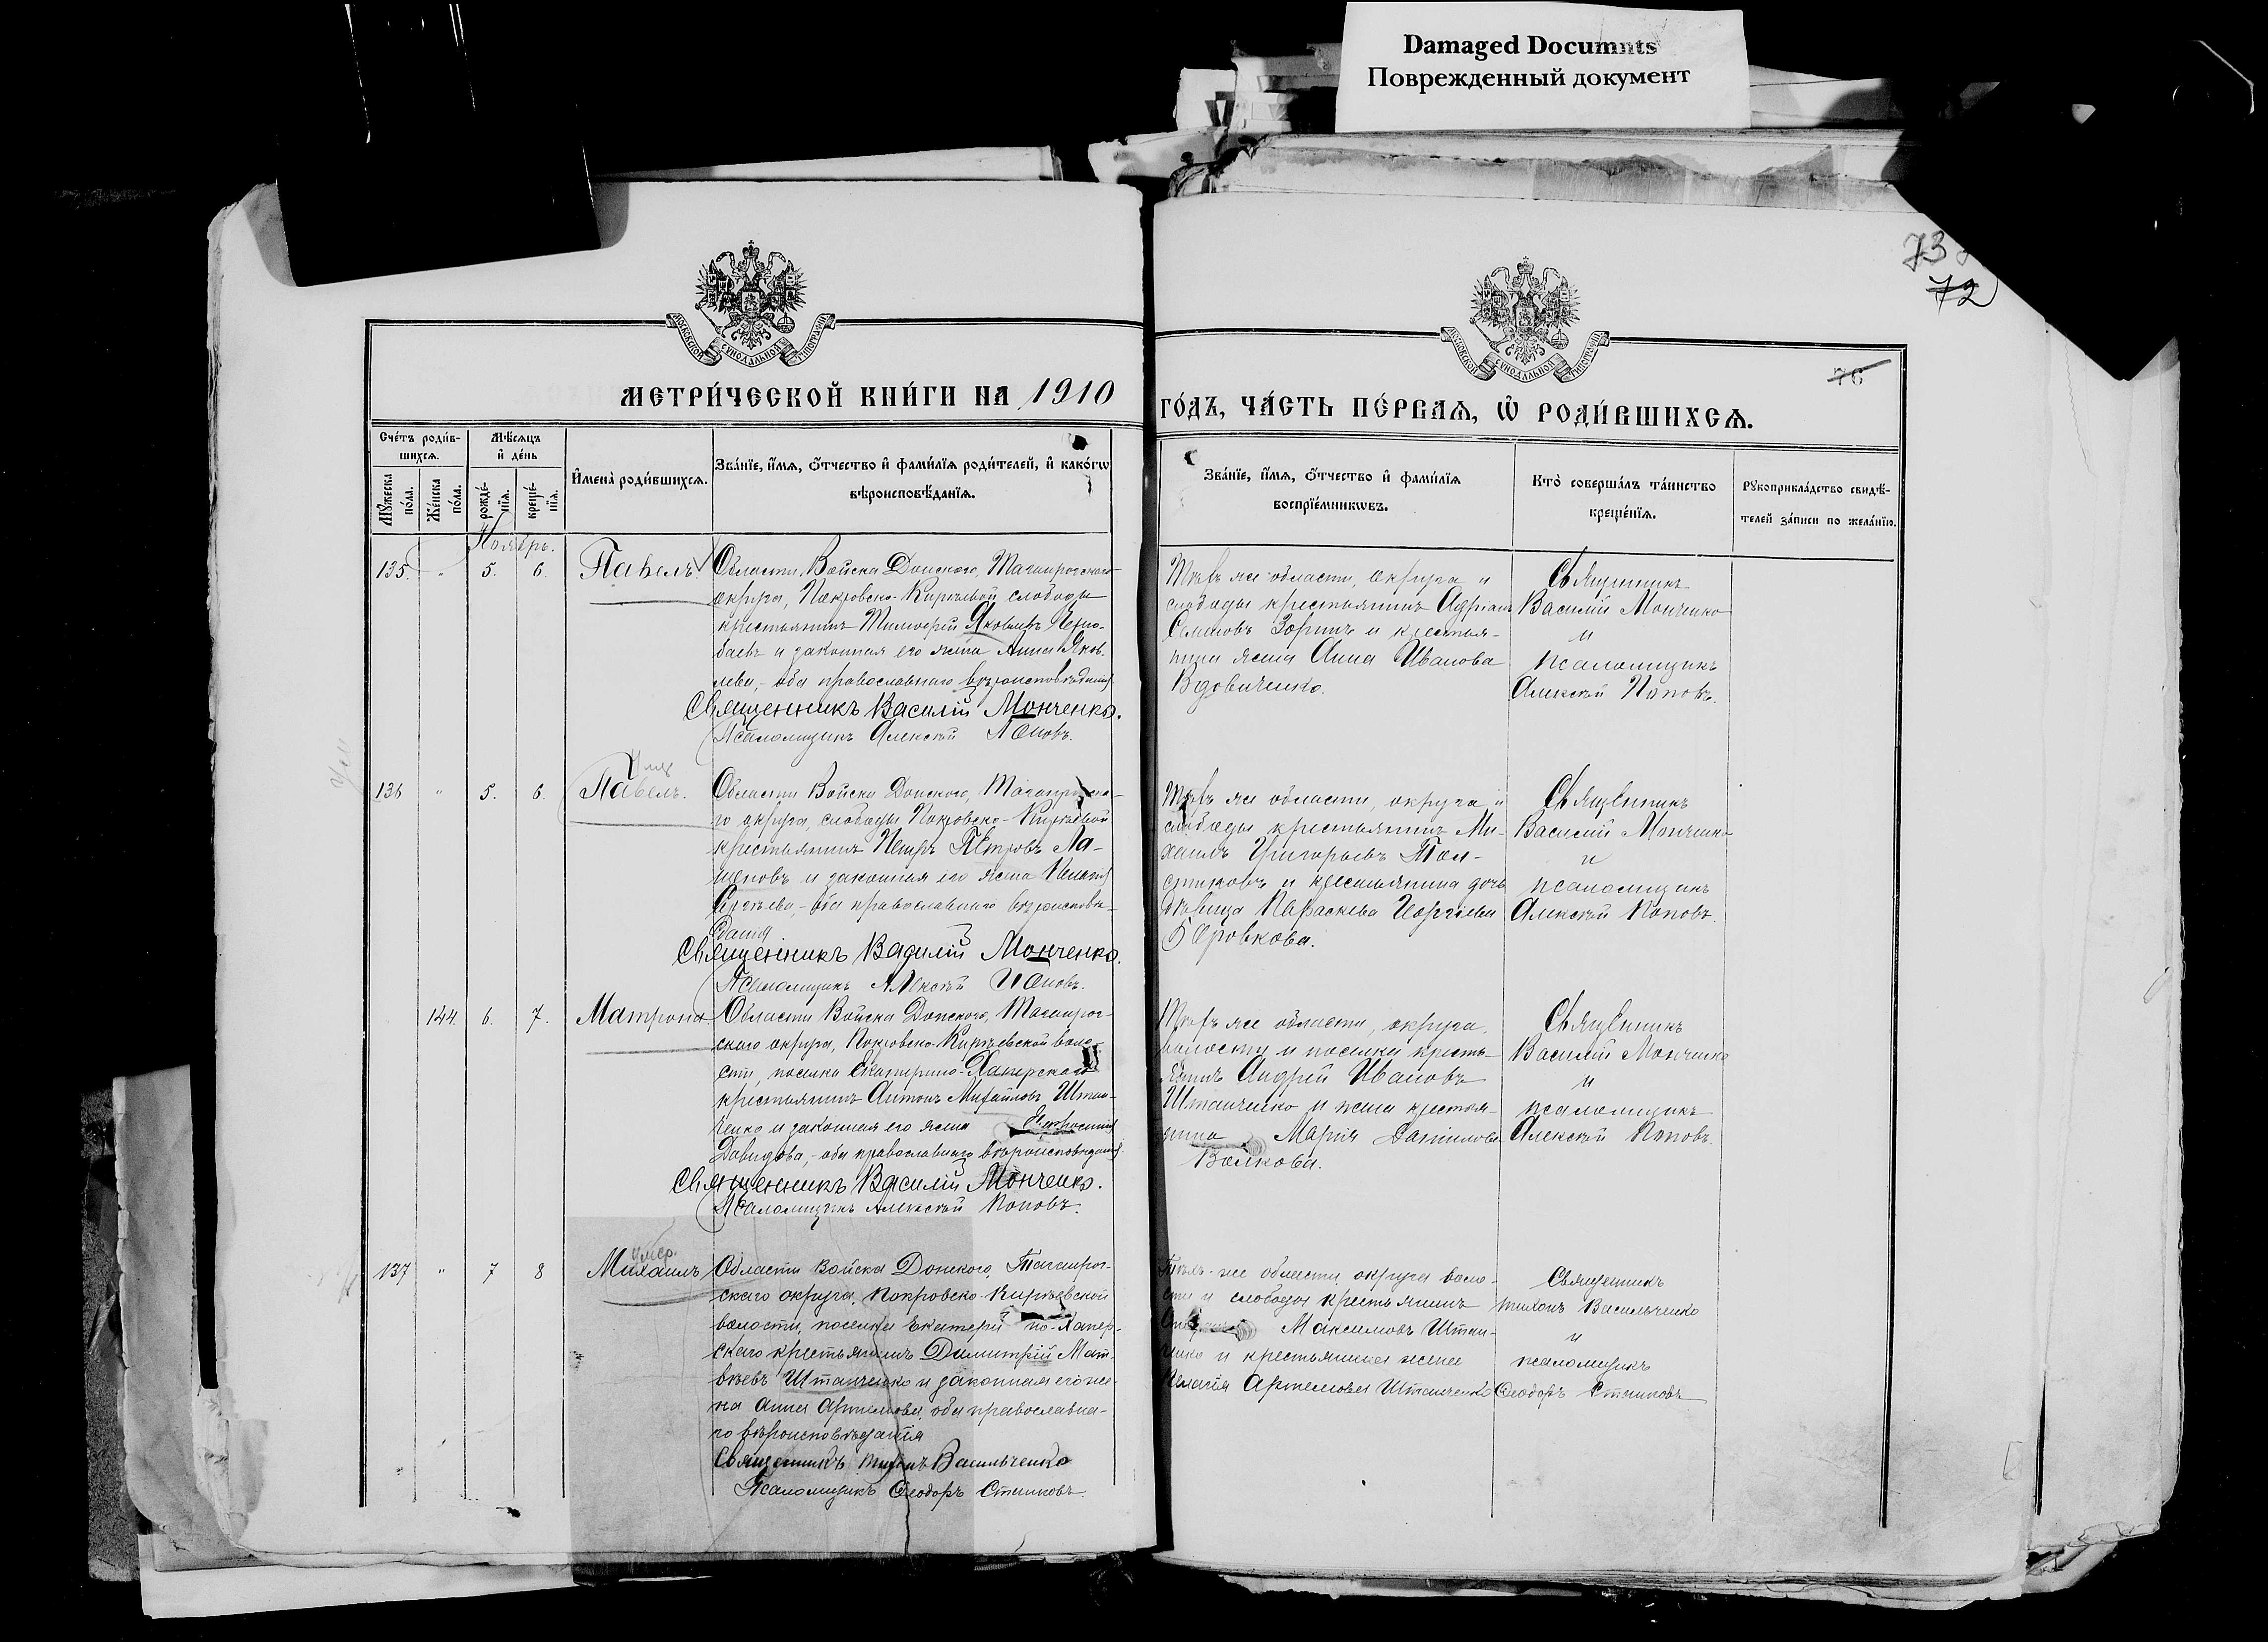 Damaged Documnts
Поврежденный документ
73
72
76
МОСКОВСКОЙ СѴНОДАЛЬНОЙ ТИПОГРАФІИ
МОСКОВСКОЙ СѴНОДАЛЬНОЙ ТИПОГРАФІИ
МЕТРИ́ЧЕСКОЙ КНИ́ГИ НА 1910
ГО́ДЪ, ЧА́СТЬ ПЕ́РВАѦ, Ѡ҆ РОДИ́ВШИХСѦ.
Сче́тъ роди́в-
шихсѧ.
Мѣ́сѧцъ
и҆ де́нь
Мꙋ́жеска
по́ла.
Же́нска
по́ла.
рожде́-
нїѧ.
креще́-
нїѧ.
И҆мена̀ роди́вшихсѧ.
Зва́нїе, и҆́мѧ, ѻ҆́тчество и҆ фами́лїѧ роди́телей, и҆ како́гѡ
вѣроисповѣ́данїѧ.
Зва́нїе, и҆́мѧ, ѻ҆́тчество и҆ фами́лїѧ
воспрїе́мникѡвъ.
Кто̀ соверша́лъ та́инство
креще́нїѧ.
Рꙋкоприкла́дство свидѣ́-
телей за́писи по жела́нїю.
Ноябрь.
135. " 5. 6. Павелъ
Области Войска Донского, Таганрогскаго
округа, Покровско-Киреевой слободы
крестьянинъ Тимоѳей Яковлевъ
и законная его жена Анна Яков-
лева, - оба православнаго вѣроисповѣданія
Священникъ Василій Монченко.
Псаломщикъ Алексѣй Поповъ.
Той же области, округа и
слободы крестьянинъ Адріанъ
Зоринъ и крестья-
нина жена Анна Иванова
Вдовиченко.
Священникъ
Василій Монченко
и
псаломщикъ
Алексѣй Поповъ.
136 " 5. 6. Павелъ.
Области Войска Донского, Таганрогска-
го округа, слободы Покровско-Киреевой
крестьянинъ Петръ Петровъ Ла-
и законная его жена Пелагія
Сергѣева, - оба православнаго вѣроисповѣ-
данія
Священникъ Василій Монченко.
Псаломщикъ Алексѣй Поповъ.
же области, округа и
слободы крестьянинъ Ми-
хаилъ Григорьевъ Тол-
стиковъ и крестьянина дочь
дѣвица Параскева Георгіева
Боровкова.
Священникъ
Василій Монченко
и
псаломщикъ
Алексѣй Поповъ.
144. 6. 7. Матрона.
Области Войска Донского, Таганрог-
скаго округа, Покровско-Киреевской воло-
сти, поселка Екатерино-Хаперскаго
крестьянинъ Антонъ Михайловъ Штан-
ченко и законная его жена
Давидова, - оба православнаго вѣроисповѣданія.
Священникъ Василій Монченко.
Псаломщикъ Алексѣй Поповъ.
же области, округа,
волости и поселка кресть-
янинъ Андрей Ивановъ
Штанченко и жена крестья-
нина Марія Данилова
Волкова.
Священникъ
Василій Монченко
и
псаломщикъ
Алексѣй Поповъ.
137 " 7 8
умер.
Михаилъ
Области Войска Донского, Таганрог-
скаго округа, Покровско-Киреевской
волости, поселка Екатерино-Хапер-
скаго крестьянинъ Димитрій Мат-
вѣевъ Штанченко и законная его же-
на Анна Артемова, оба православна-
го вѣроисповѣданія
Священникъ Тихонъ Васильченко
Псаломщикъ Ѳеодоръ Стешковъ.
же области округа воло-
сти и слободы крестьянинъ
Максимовъ Штан-
ченко и крестьянина жена
Пелагія Артемова Штанченко
Священникъ
Тихонъ Васильченко
и
псаломщикъ
Ѳеодоръ